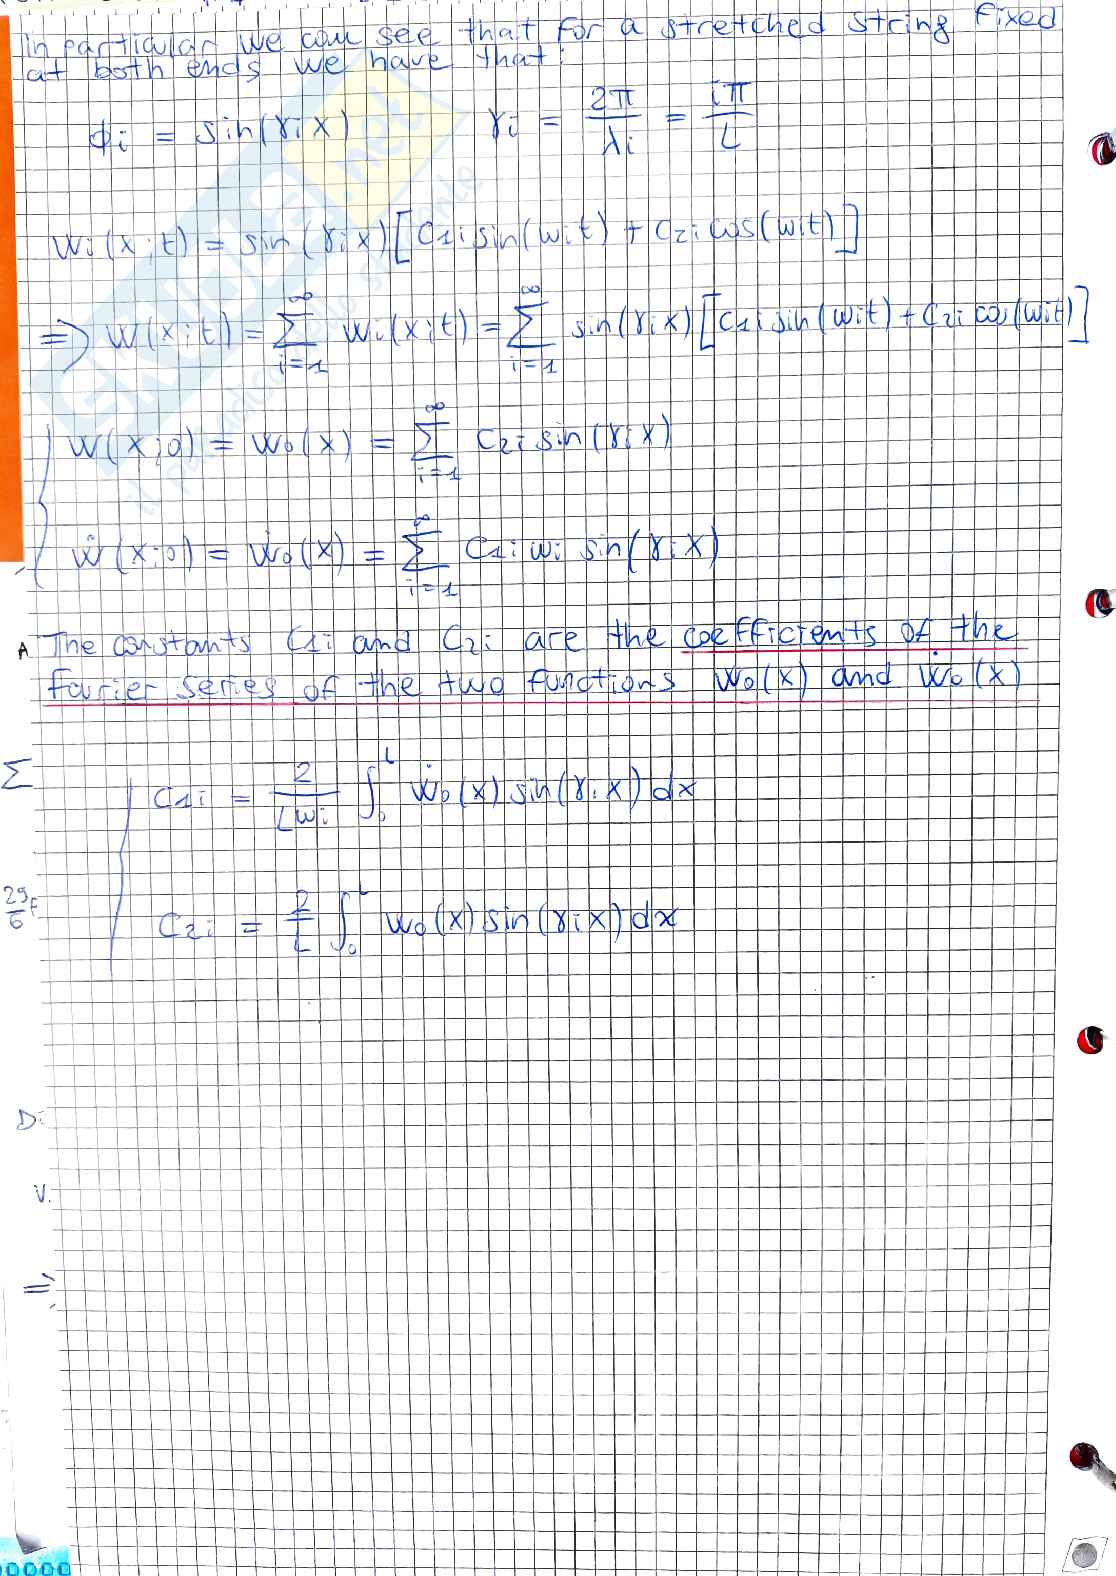 In particular we can see that for a stretched string fixed
at both ends we have that:
ϕi = sin(γix) γi = 2π/λi = iπ/L
wi(x;t) = sin(γix)[C1i sin(wit) + C2i cos(wit)]
=> w(x;t) = ∞∑i=1 wi(x;t) = ∞∑i=1 sin(γix)[C1i sin(wit) + C2i cos(wit)]
w(x;0) = w0(x) = ∞∑i=1 C2i sin(γix)
ẇ(x;0) = ẇ0(x) = ∞∑i=1 C1i wi sin(γix)
A The constants C1i and C2i are the coefficients of the
fourier series of the two functions w0(x) and ẇ0(x)
∑
C1i = 2/Lwi ∫0L ẇ0(x) sin(γix) dx
C2i = 2/L ∫0L w0(x) sin(γix) dx
D:
V.
=>
SKUOLA.net